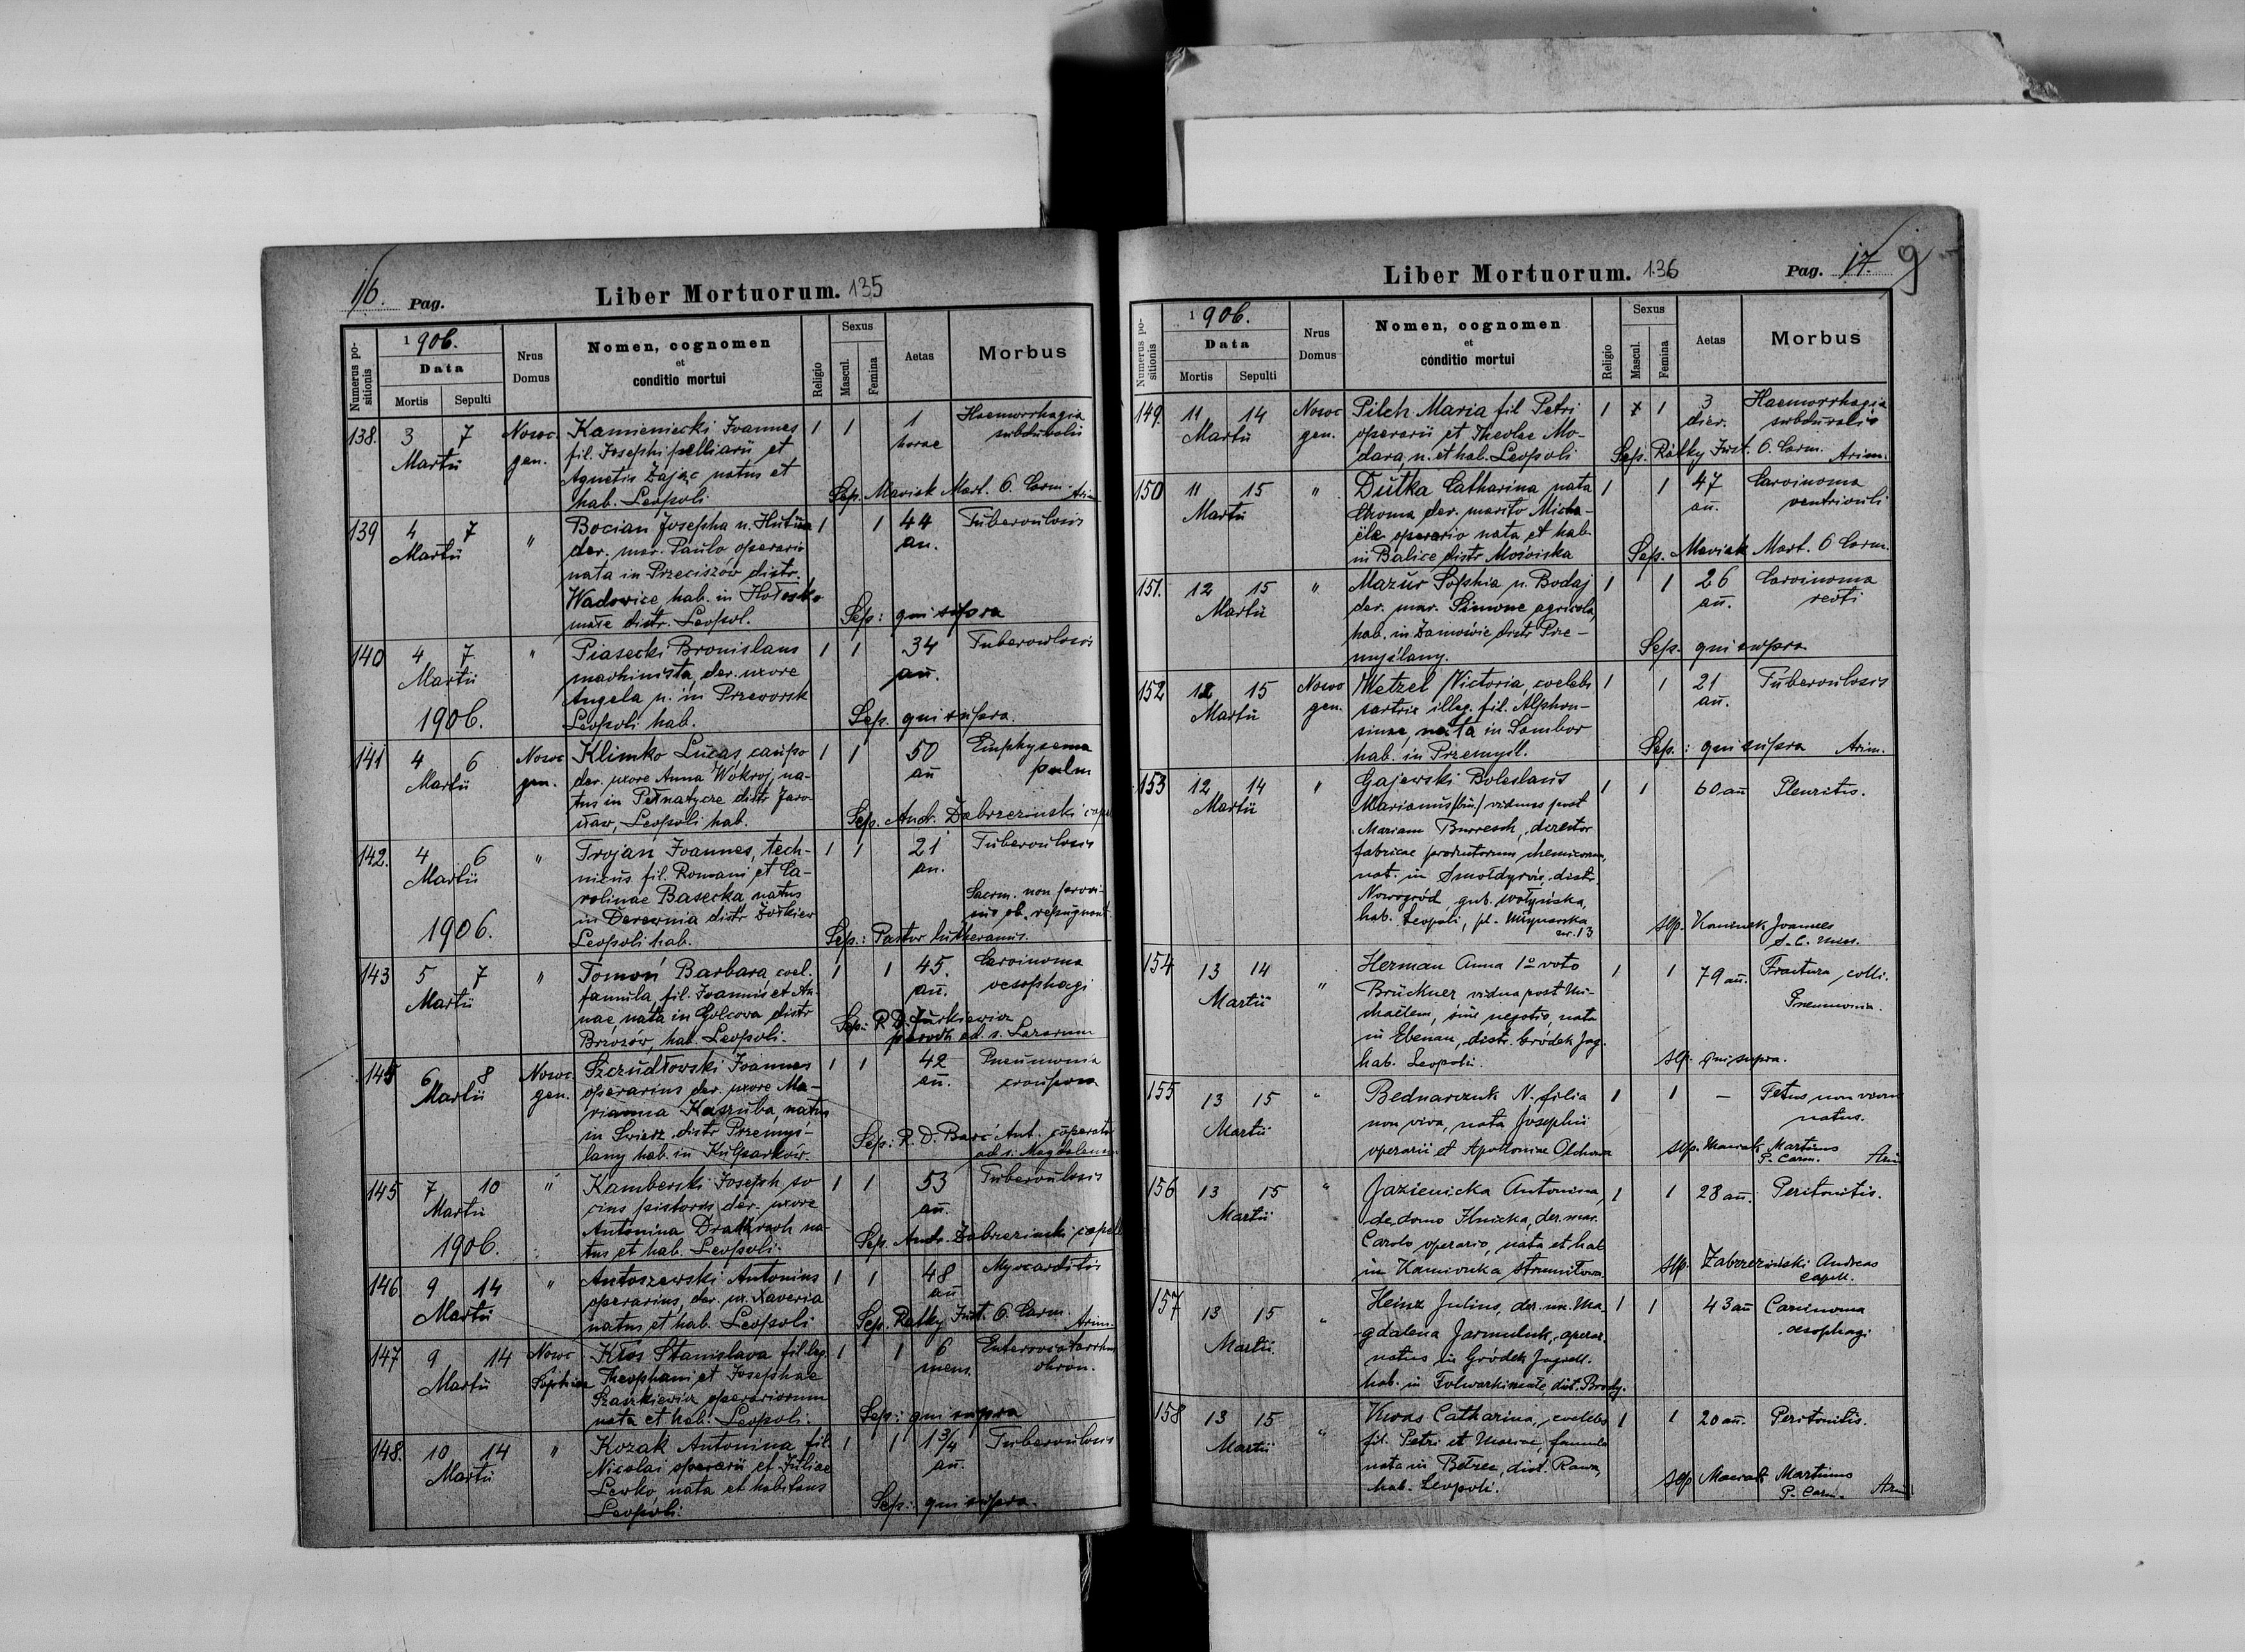 16. Pag.
Liber Mortuorum. 135
Numerus positionis
1906.
Data
Mortis
Sepulti
Nrus Domus
Nomen, cognomen
et
conditio mortui
Religio
Sexus
Mascul.
Femina
Aetas
Morbus
138. 3 7 Nosoc. Kamieniecki Joannes 1 1 1 Haemorrhagia
Martii gen. fil. Josephi pelliarii et horae subduralis
Agnetis Zając natus et
hab. Leopoli Sep. Maciak Mart. O. Carm.
139 4 7 " Bocian Josepha n. 1 1 44 Tuberculosis
Martii der. mar. Paulo operario an.
nata in Przeciszów distr.
Wadowice hab. in Hołosko
małe distr. Leopol. Sep: qui supra
140 4 7 " Piasecki Bronislaus 1 1 34 Tuberculosis
Martii machinista, der. uxore an.
Angela n. in Przeworsk
1906. Leopoli hab. Sep. qui supra.
141 4 6 Nosoc Klimko Lucas, caupo 1 1 50 Emphysema
Martii gen. der. uxore Anna Wokroj, na- an pulm
tus in Pełnatycze distr Jaro-
sław, Leopoli hab. Sep. Andr. Zabrzezinski
142. 4 6 " Trojan Joannes, tech- 1 1 21 Tuberculosis
Martii nicus fil. Romani et Ca- an.
rolinae Basecka natus Sacrm. non
in Derewnia distr Żołkiew ob. repugnant.
1906. Leopoli hab. Sep.: Pastor lutheranus.
143 5 7 " Tomoń Barbara, coel. 1 1 45. Carcinoma
Martii famula, fil. Joannis et An- an. oesophagi
nae, nata in Golcowa distr
Brzozow, hab. Leopoli. Sep: R. D. Jurkiewicz
paroch ad. s. Lazarum
145 6 8 Nosoc. Szczudłowski Joannes 1 1 42 Pneumonia
Martii gen. operarius der. uxore Ma- an. crouposa
rianna Kaszuba, natus
in Swirz distr Przemyś-
lany hab. in Kulparków. Sep: R. D. Ant. cooperator
ad s. Magdalenam
145 7 10 " Kamberski Joseph so 1 1 53 Tuberculosis
Martii cius pistoris der. uxore an.
Antonina na-
1906. tus et hab. Leopoli. Sep. Andr. Zabrzezinski capell
146. 9 14 " Antoszewski Antonius 1 1 48 Myocarditis
Martii operarius, der. ux. Xaveria an
natus et hab. Leopoli Sep. Ratky Just. O. Carm.
147 9 14 Nosoc Kłos Stanislava fil. leg. 1 1 6
Martii Sophiae Theophani et Josephae mens. chron.
Szaszkiewicz operariorum
nata et hab. Leopoli. Sep: qui supra
148. 10 14 " Kozak Antonina fil. 1 1 1 3/4 Tuberculosis
Martii Nicolai operarii et Juliae an.
Lewko nata et habitans
Leopoli. Sep.: qui supra.
Liber Mortuorum. 136
Pag. 17. 9
Numerus positionis
1906.
Data
Mortis
Sepulti
Nrus
Domus
Nomen, cognomen
et
conditio mortui
Religio
Sexus
Mascul.
Femina
Aetas
Morbus
149. 11 14 Nosoc Pilch Maria fil Petri 1 1 3 Haemorrhagia
Martii gen. operarii et Theclae Mo- dier. subduralis
dara, n. et hab. Leopoli Sep. Ratky Just. O. Carm.
150 11 15 " Dutka Catharina nata 1 1 47 Carcinoma
Martii Choma der. marito Micha- an. ventriculi
ële operario nata et hab.
in Balice distr Mościska Sep. Maciak Mart. O Carm.
151. 12 15 " Mazur Sophia n. Bodaj 1 1 26 Carcinoma
Martii der. mar. Simone agricola, an. recti
hab. in distr Prze-
myślany. Sep. qui supra
152 12 15 Nosoc Wetzel Victoria, coelebs 1 1 21 Tuberculosis
Martii gen. sartrix illeg. fil. Alphon- an.
sinae, nata in Sambor
hab. in Przemysl. Sep.: qui supra
153 12 14 " Gajewski Boleslaus 1 1 60 an Pleuritis.
Martii Marianus /bin./ viduus post
Mariam Burresch, director
fabricae productorum chemicorum,
nat. in distr.
Nowogród, gub. wołyńska,
hab. Leopoli, pl.
nr. 13 sep. Joannes
154 13 14 " Herman Anna 1o voto 1 1 79 an. Fractura colli.
Martii Brückner vidua post Mi- Pneumonia.
chaëlem, sine negotio, nata
in Ebenau, distr. Gródek Jag.
hab. Leopoli. sep. qui supra.
155 13 15 " Bednarczuk N. filia 1 1 — Fetus non vivus
Martii non viva, nata Josephi natus.
operarii et Apoloniae sep. Maciak Martinus
P. Carm.
156 13 15 " Jazienicka Antonina, 1 1 28 an. Peritonitis.
Martii de domo Ilnicka, der. mar.
Carolo operario, nata et hab
in Kamionka Strumiłowa. sep. Zabrzeziński Andreas
Capell.
157 13 15 " Heinz Julius, der. ux. Ma- 1 1 43 an Carcinoma
Martii. gdalena Jarmuluk, operar. oesophagi
natus in Gródek Jagiell.
hab. in Folwarki małe, dist. Brody.
158 13 15 " Kwas Catharina, coelebs 1 1 20 an. Peritonitis.
Martii fil. Petri et Mariae, famula
nata in Bełzec, dist. Rawa,
hab. Leopoli. sep Maciak Martinus
P. Carm.